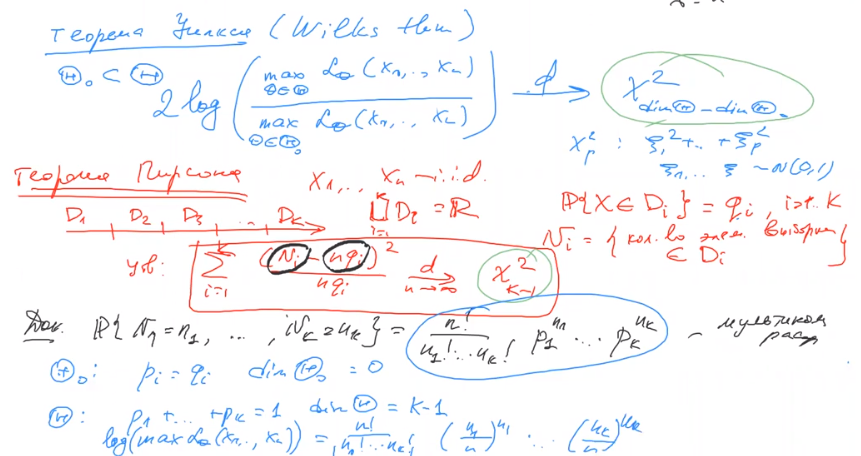 Теорема Уилкса (Wilks thm)
Θ₀ ⊂ Θ
2 log ( max_{θ∈Θ} L_θ (x₁, .., xₙ) / max_{θ∈Θ₀} L_θ (x₁, .., xₙ) ) →^d χ²_{dim Θ − dim Θ₀}
χ²_p : ξ₁² + .. + ξ_p²
ξ₁, .. ξ ~ N(0,1)
Теорема Пирсона
x₁, .. xₙ – i.i.d.
D₁ D₂ D₃ .. D_k
⨆_{i=1}^{k} D_i = ℝ
ℙ{X ∈ D_i} = q_i , i=1..k
N_i = { кол-во элем. выборки ∈ D_i }
утв: ∑_{i=1}^{k} (N_i − nq_i)² / nq_i →^d_{n→∞} χ²_{k−1}
Док. ℙ{N₁ = n₁, ..., N_k = n_k} = n! / n₁! ... n_k! p₁^{n₁} ... p_k^{n_k} – мультином распр
Θ₀ : p_i = q_i dim Θ₀ = 0
Θ : p₁ + ... + p_k = 1 dim Θ = k−1
log(max L_θ (x₁, .., xₙ)) = n! / n₁! ... n_k! (n₁/n)^{n₁} ... (n_k/n)^{n_k}